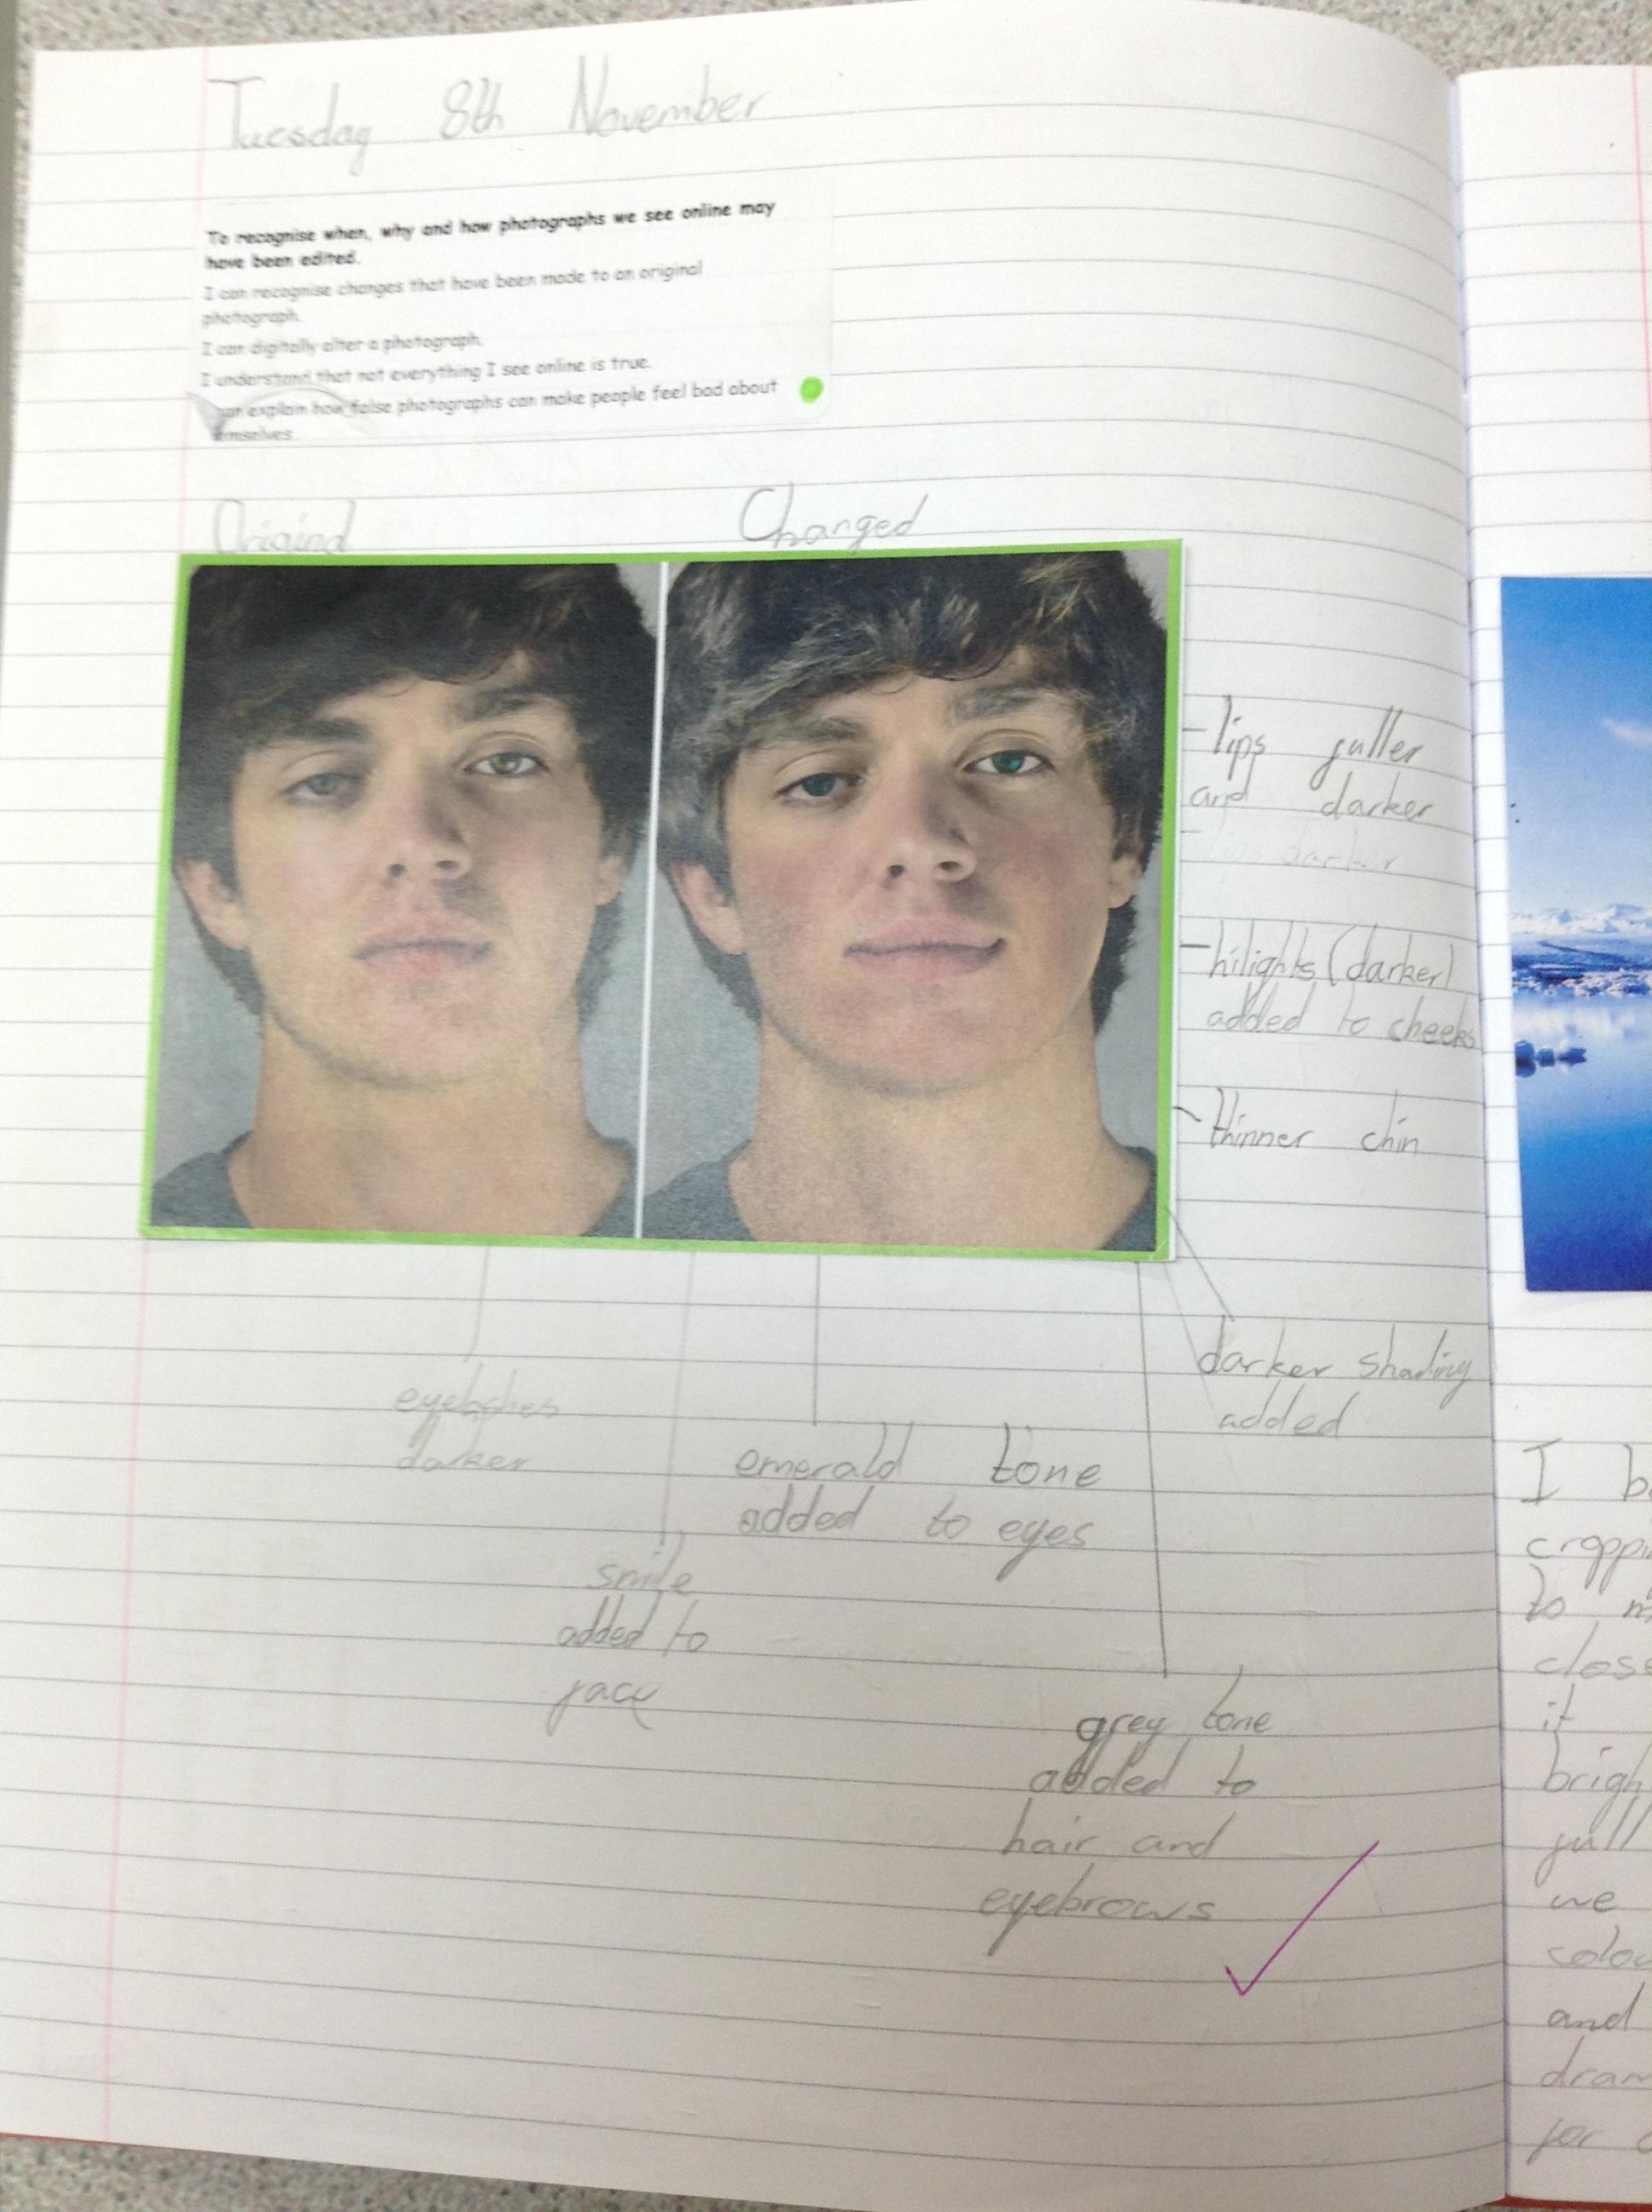 Tuesday 8th November
To recognise when, why and how photographs we see online may
have been edited.
I can recognise changes that have been made to an original
photograph.
I can digitally alter a photograph.
I understand that not everything I see online is true.
an explain how false photographs can make people feel bad about
emselves.
Original
Changed
-lips fuller
and darker
- lips darker
-hilights (darker)
added to cheeks
-thinner chin
darker shading
added
eyelashes
darker
emerald tone
added to eyes
smile
added to
face
grey tone
added to
hair and
eyebrows
I b
croppi
to m
close
it
brigh
full
we
colou
and
dram
for